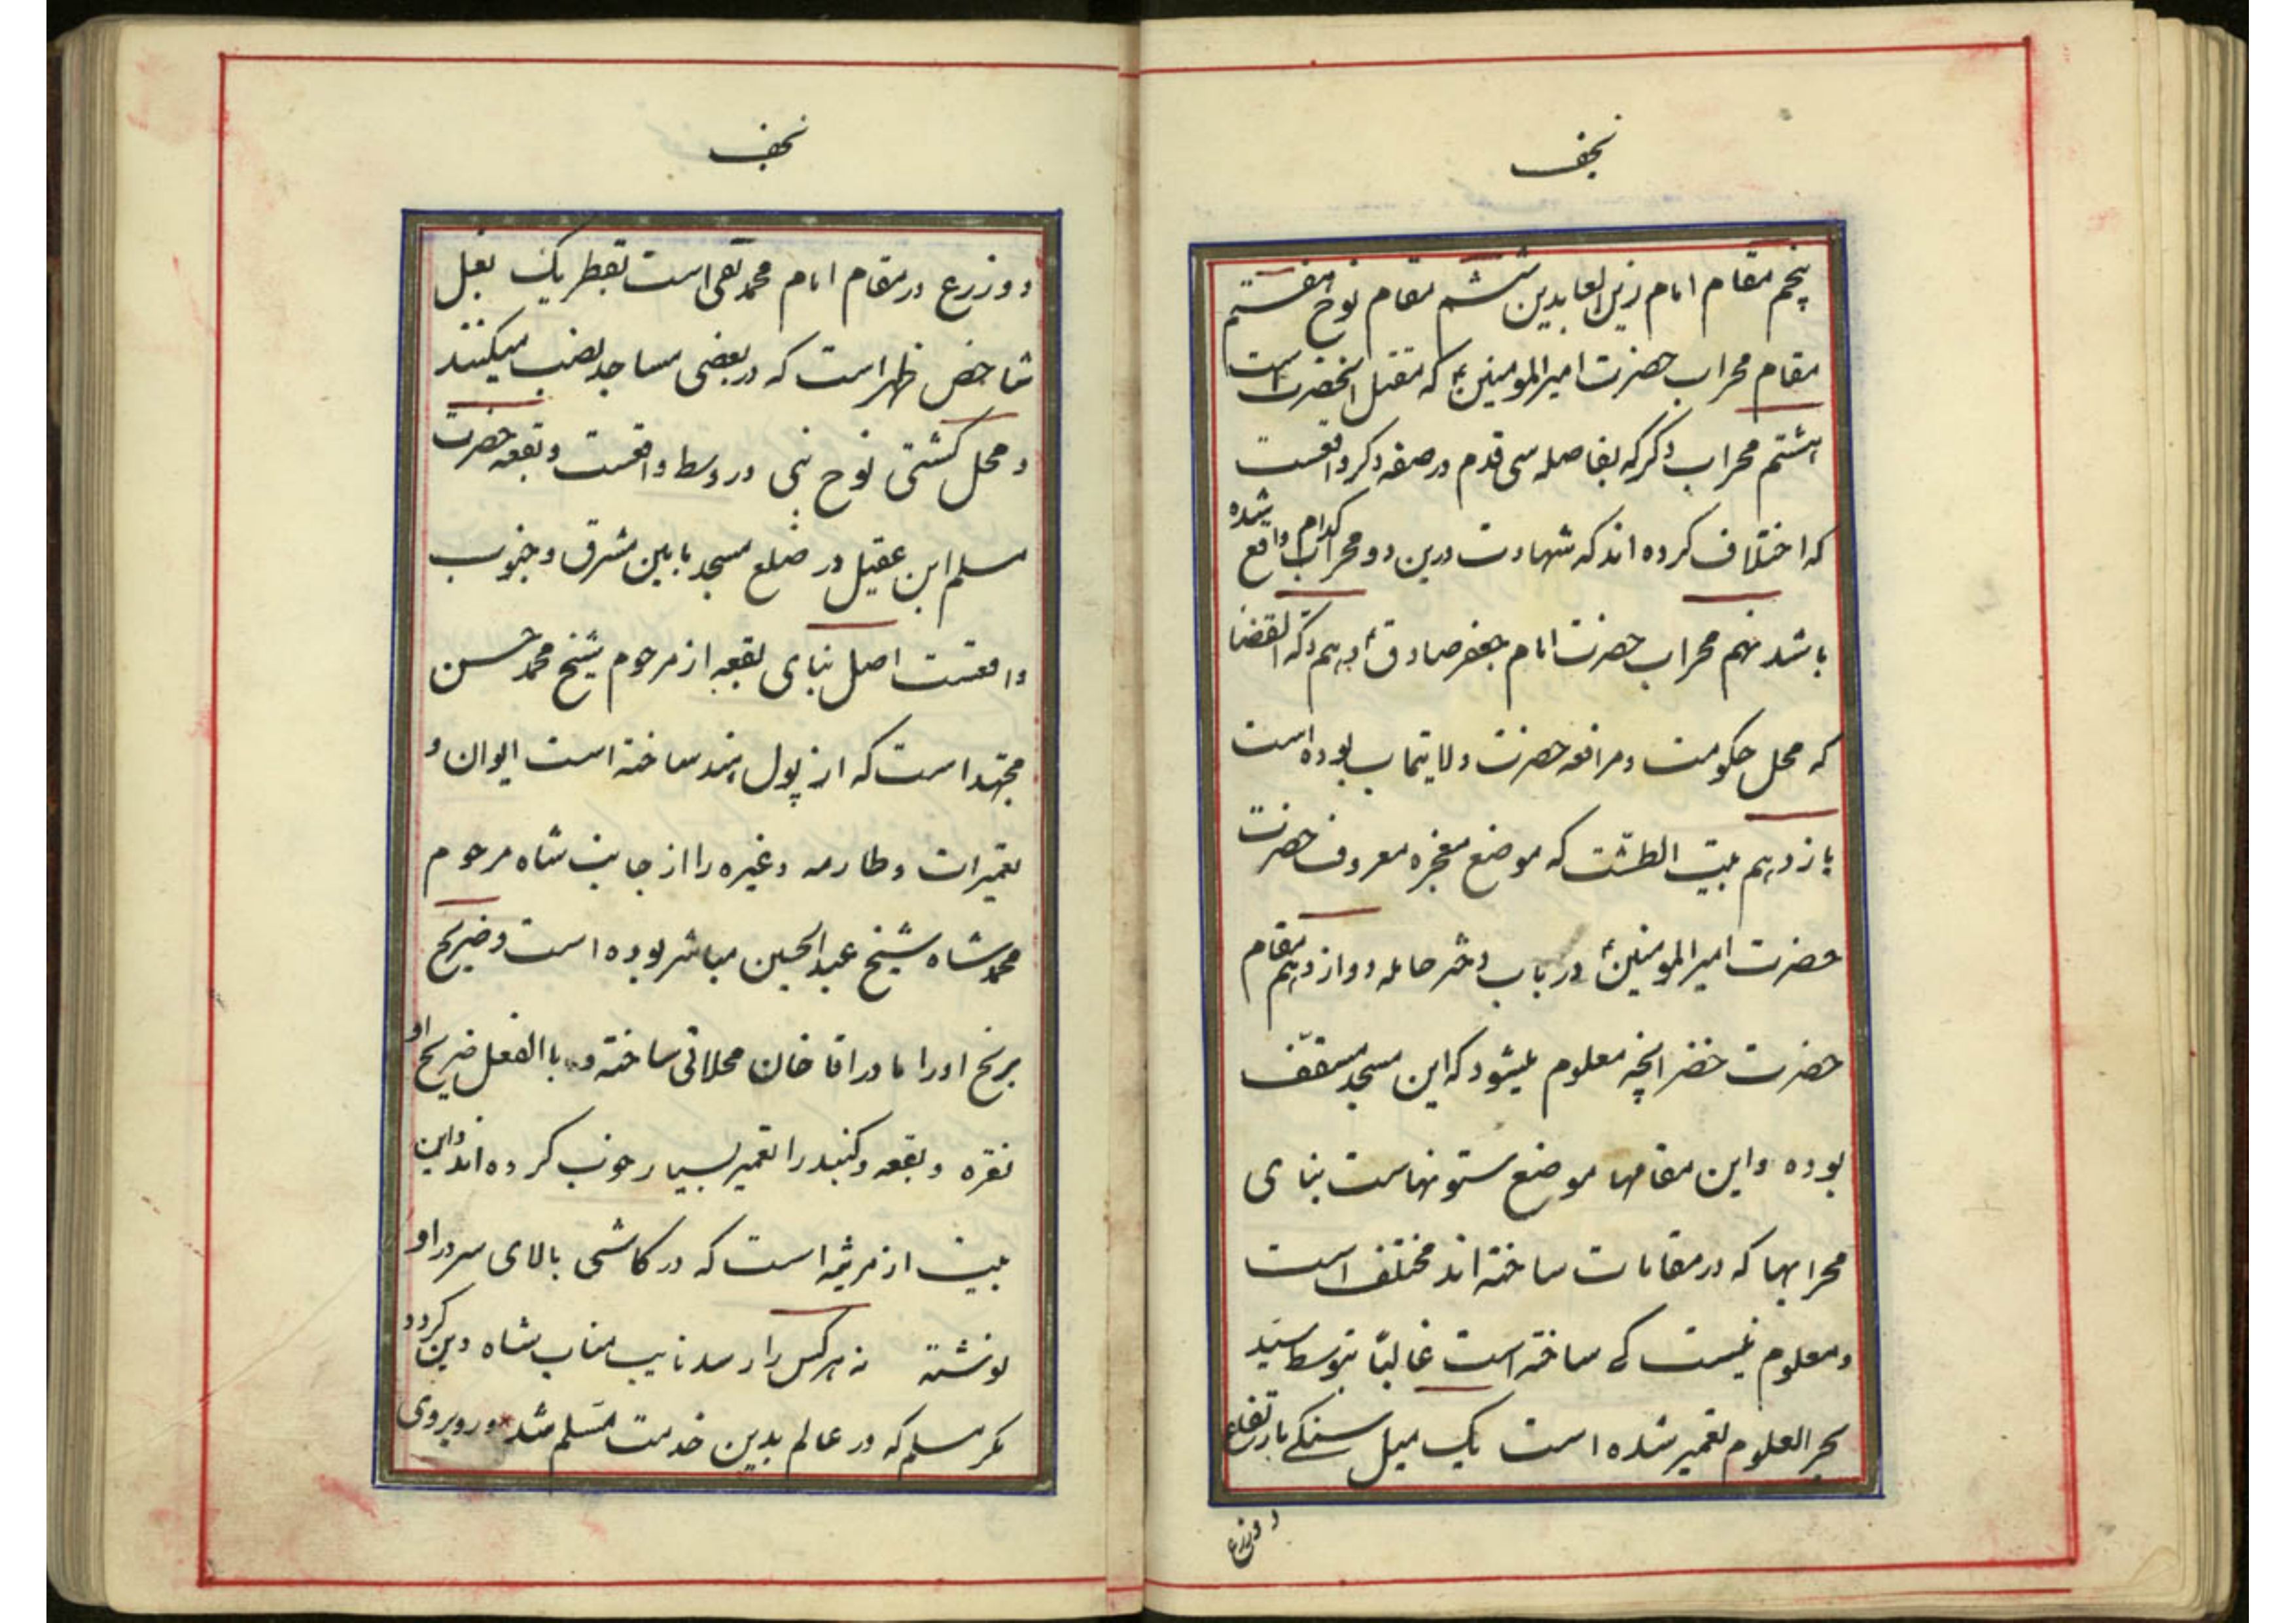 نجف
پنجم مقام امام زین العابدین ششم مقام نوح هفتم
مقام محراب حضرت امیرالمومنین ع که مقتل انحضرت است
هشتم محراب دکر که بفاصله سی قدم در صفه دکر واقعست
که اختلاف کرده اند که شهادت درین دو محراب کدام واقع شده
باشد نهم محراب حضرت امام جعفر صادق ع دهم دکة القضا
که محل حکومت و مرافعه حضرت ولایتماب بوده است
یازدهم بیت الطشت که موضع معجزه معروف حضرت
حضرت امیرالمومنین ع در باب دختر حامله دوازدهم مقام
حضرت خضر انچه معلوم میشود که این مسجد مسقف
بوده و این مقامها موضع ستونهاست بنای
محرابها که در مقامات ساخته اند مختلف است
و معلوم نیست کی ساخته است غالباً بتوسط سید
بحر العلوم تعمیر شده است یک میل سنکی بارتفاع
دو ذرع
نجف
دو ذرع در مقام امام محمد تقی است بقطر یک بغل
شاخص ظهر است که در بعضی مساجد نصب میکنند
و محل کشتی نوح نبی در وسط واقعست و بقعه حضرت
مسلم ابن عقیل در ضلع مسجد مابین مشرق و جنوب
واقعست اصل بنای بقعه از مرحوم شیخ محمد حسن
مجتهد است که از پول هند ساخته است ایوان و
تعمیرات و طارمه و غیره را از جانب شاه مرحوم
محمد شاه شیخ عبدالحسین مباشر بوده است و ضریح
برنج اورا مادر اقا خان محلاتی ساخته و باالفعل ضریح او
نقره و بقعه و کنبد را تعمیر بسیار خوب کرده اند و این
بیت از مرثیه است که در کاشی بالای سردر او
نوشته نه هرکس را رسد نایب مناب شاه دین کردد
مکر مسلم که در عالم بدین خدمت مسلم شد و روبروی